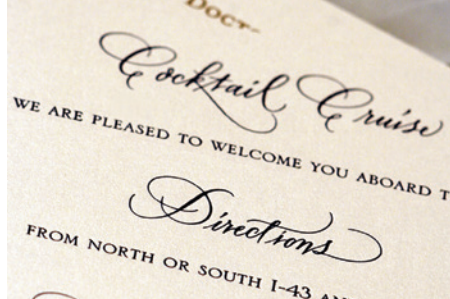 Cocktail Cruise
WE ARE PLEASED TO WELCOME YOU ABOARD
Directions
FROM NORTH OR SOUTH I-43